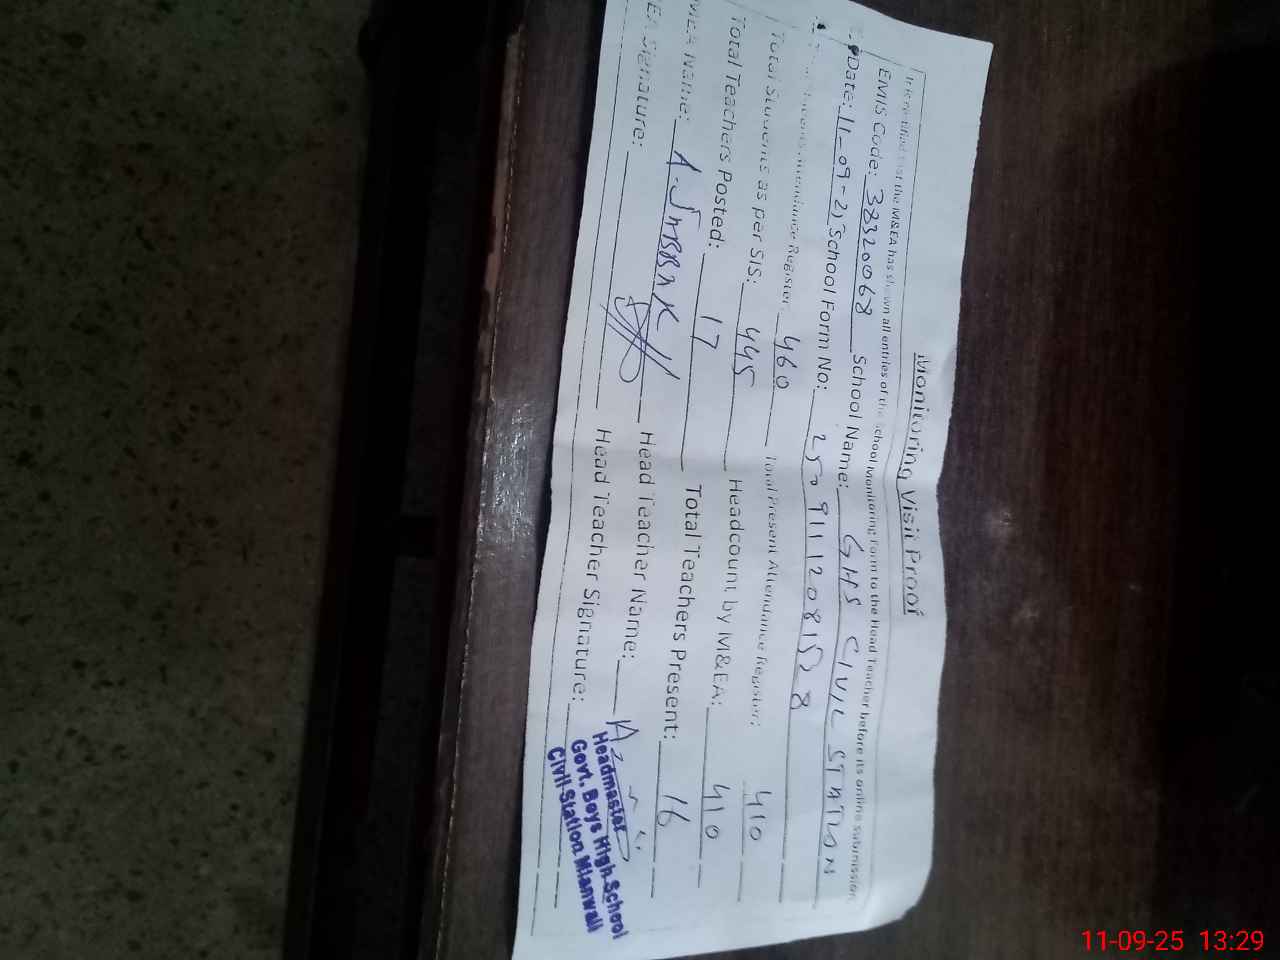 Monitoring Visit Proof
It is certified that the M&EA has shown all entries of the School Monitoring Form to the Head Teacher before its online submission.
EMIS Code: 38320068 School Name: GHS CIVIL STATION
Date: 11-09-25 School Form No: 2509111208152 8
Attendance Register: 460 Total Present Attendance Register: 410
Total Students as per SIS: 445 Headcount by M&EA: 410
Total Teachers Posted: 17 Total Teachers Present: 16
MEA Name: Head Teacher Name:
Signature: Head Teacher Signature:
Headmaster
Govt. Boys High School
Civil Station Mianwali
11-09-25 13:29